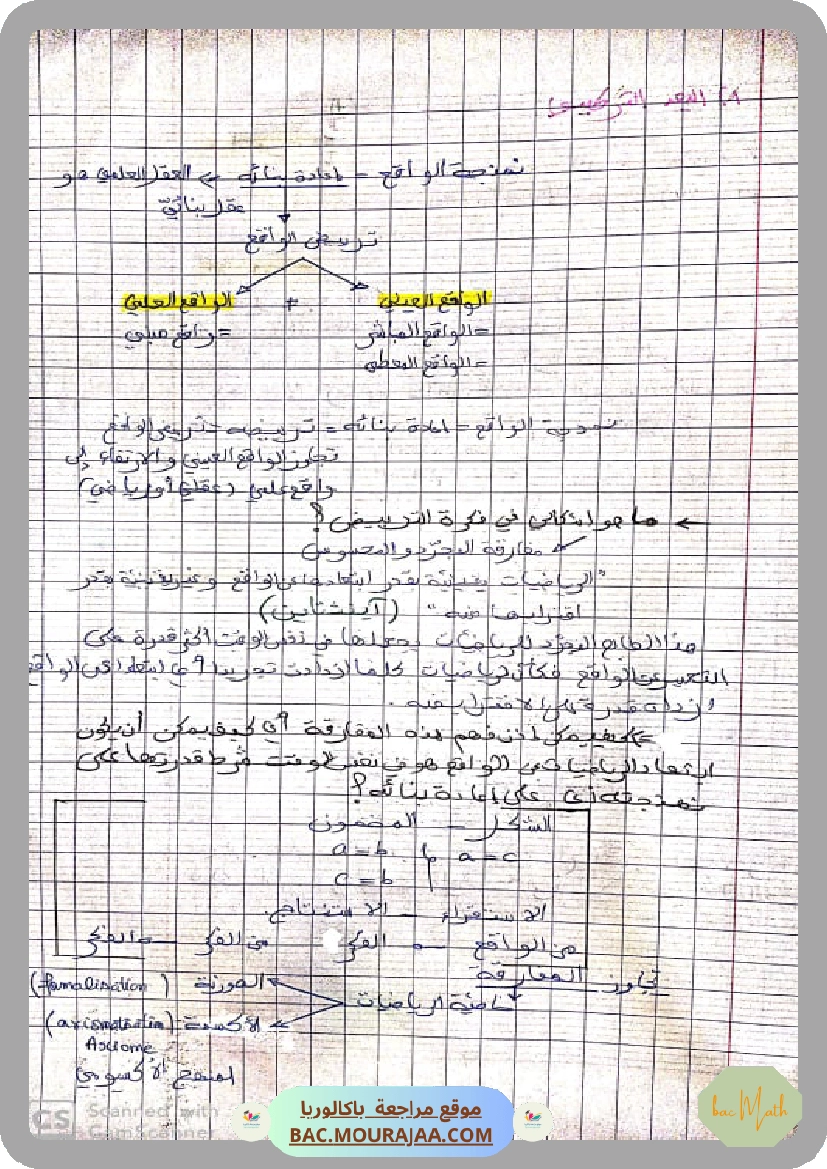 1) البعد التركيبي
نمذجة الواقع = إعادة بنائه ← العقل العلمي هو
عقل بنائيّ
ترييض الواقع
الواقع العيني + الواقع العلمي
= الواقع المباشر = واقع مبني
= الواقع المعطى
نمذجة الواقع = إعادة بنائه = ترييضه = ترييض الواقع
تجاوز الواقع العيني والارتقاء إلى
واقع علمي (عقلي أو رياضي)
← ما هو إشكالي في فكرة الترييض؟
مفارقة المجرّد والمحسوس
"الرياضيات يقينيّة بقدر ابتعادها عن الواقع وغير يقينيّة بقدر
اقترابها منه" (آينشتاين)
هذا الطابع المجرّد للرياضيات يجعلها في نفس الوقت أكثر قدرة على
التعبير عن الواقع فكأنّ الرياضيات كلما ازدادت تجريدا أي ابتعادا عن الواقع
ازدادت قدرة على الاقتراب منه.
كيف يمكن إذن فهم هذه المفارقة أي كيف يمكن أن يكون
ابتعاد الرياضيات عن الواقع هو في نفس الوقت شرط قدرتها على
نمذجته أي على إعادة بنائه؟
الشكل — المضمون
a = c a = b
c = b
الاستقراء — الاستنتاج
من الواقع ← الفكر من الفكر ← الفكر
تجاوز المفارقة
ماهيّة الرياضيات
الصورنة (famalisation)
الأكسمة (axiomatisation)
Axiome
المنهج الأكسيومي
Scanned with
CS CamScanner
موقع مراجعة باكالوريا
BAC.MOURAJAA.COM
bac Math